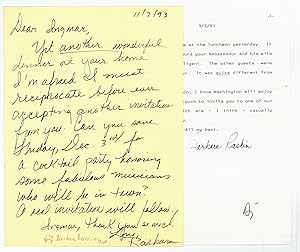 11/7/93
Dear Ingmar,
Yet another wonderful
dinner at your home
I'm afraid I must
reciprocate before ever
accepting another invitation
from you. Can you save
Friday, Dec. 3rd for
a cocktail party honoring
some fabulous musicians
who will be in town?
A real invitation will follow.
Ingmar, thank you so much!
Love,
Barbara
-1-
3/3/93
e at the luncheon yesterday. It
ound your Ambassador and his wife
lligent. The other guests were
un. It was quite different from
on; I know Washington will enjoy
ouch to invite you to one of our
ich are - I think - casually
All my best,
Barbara Raskin